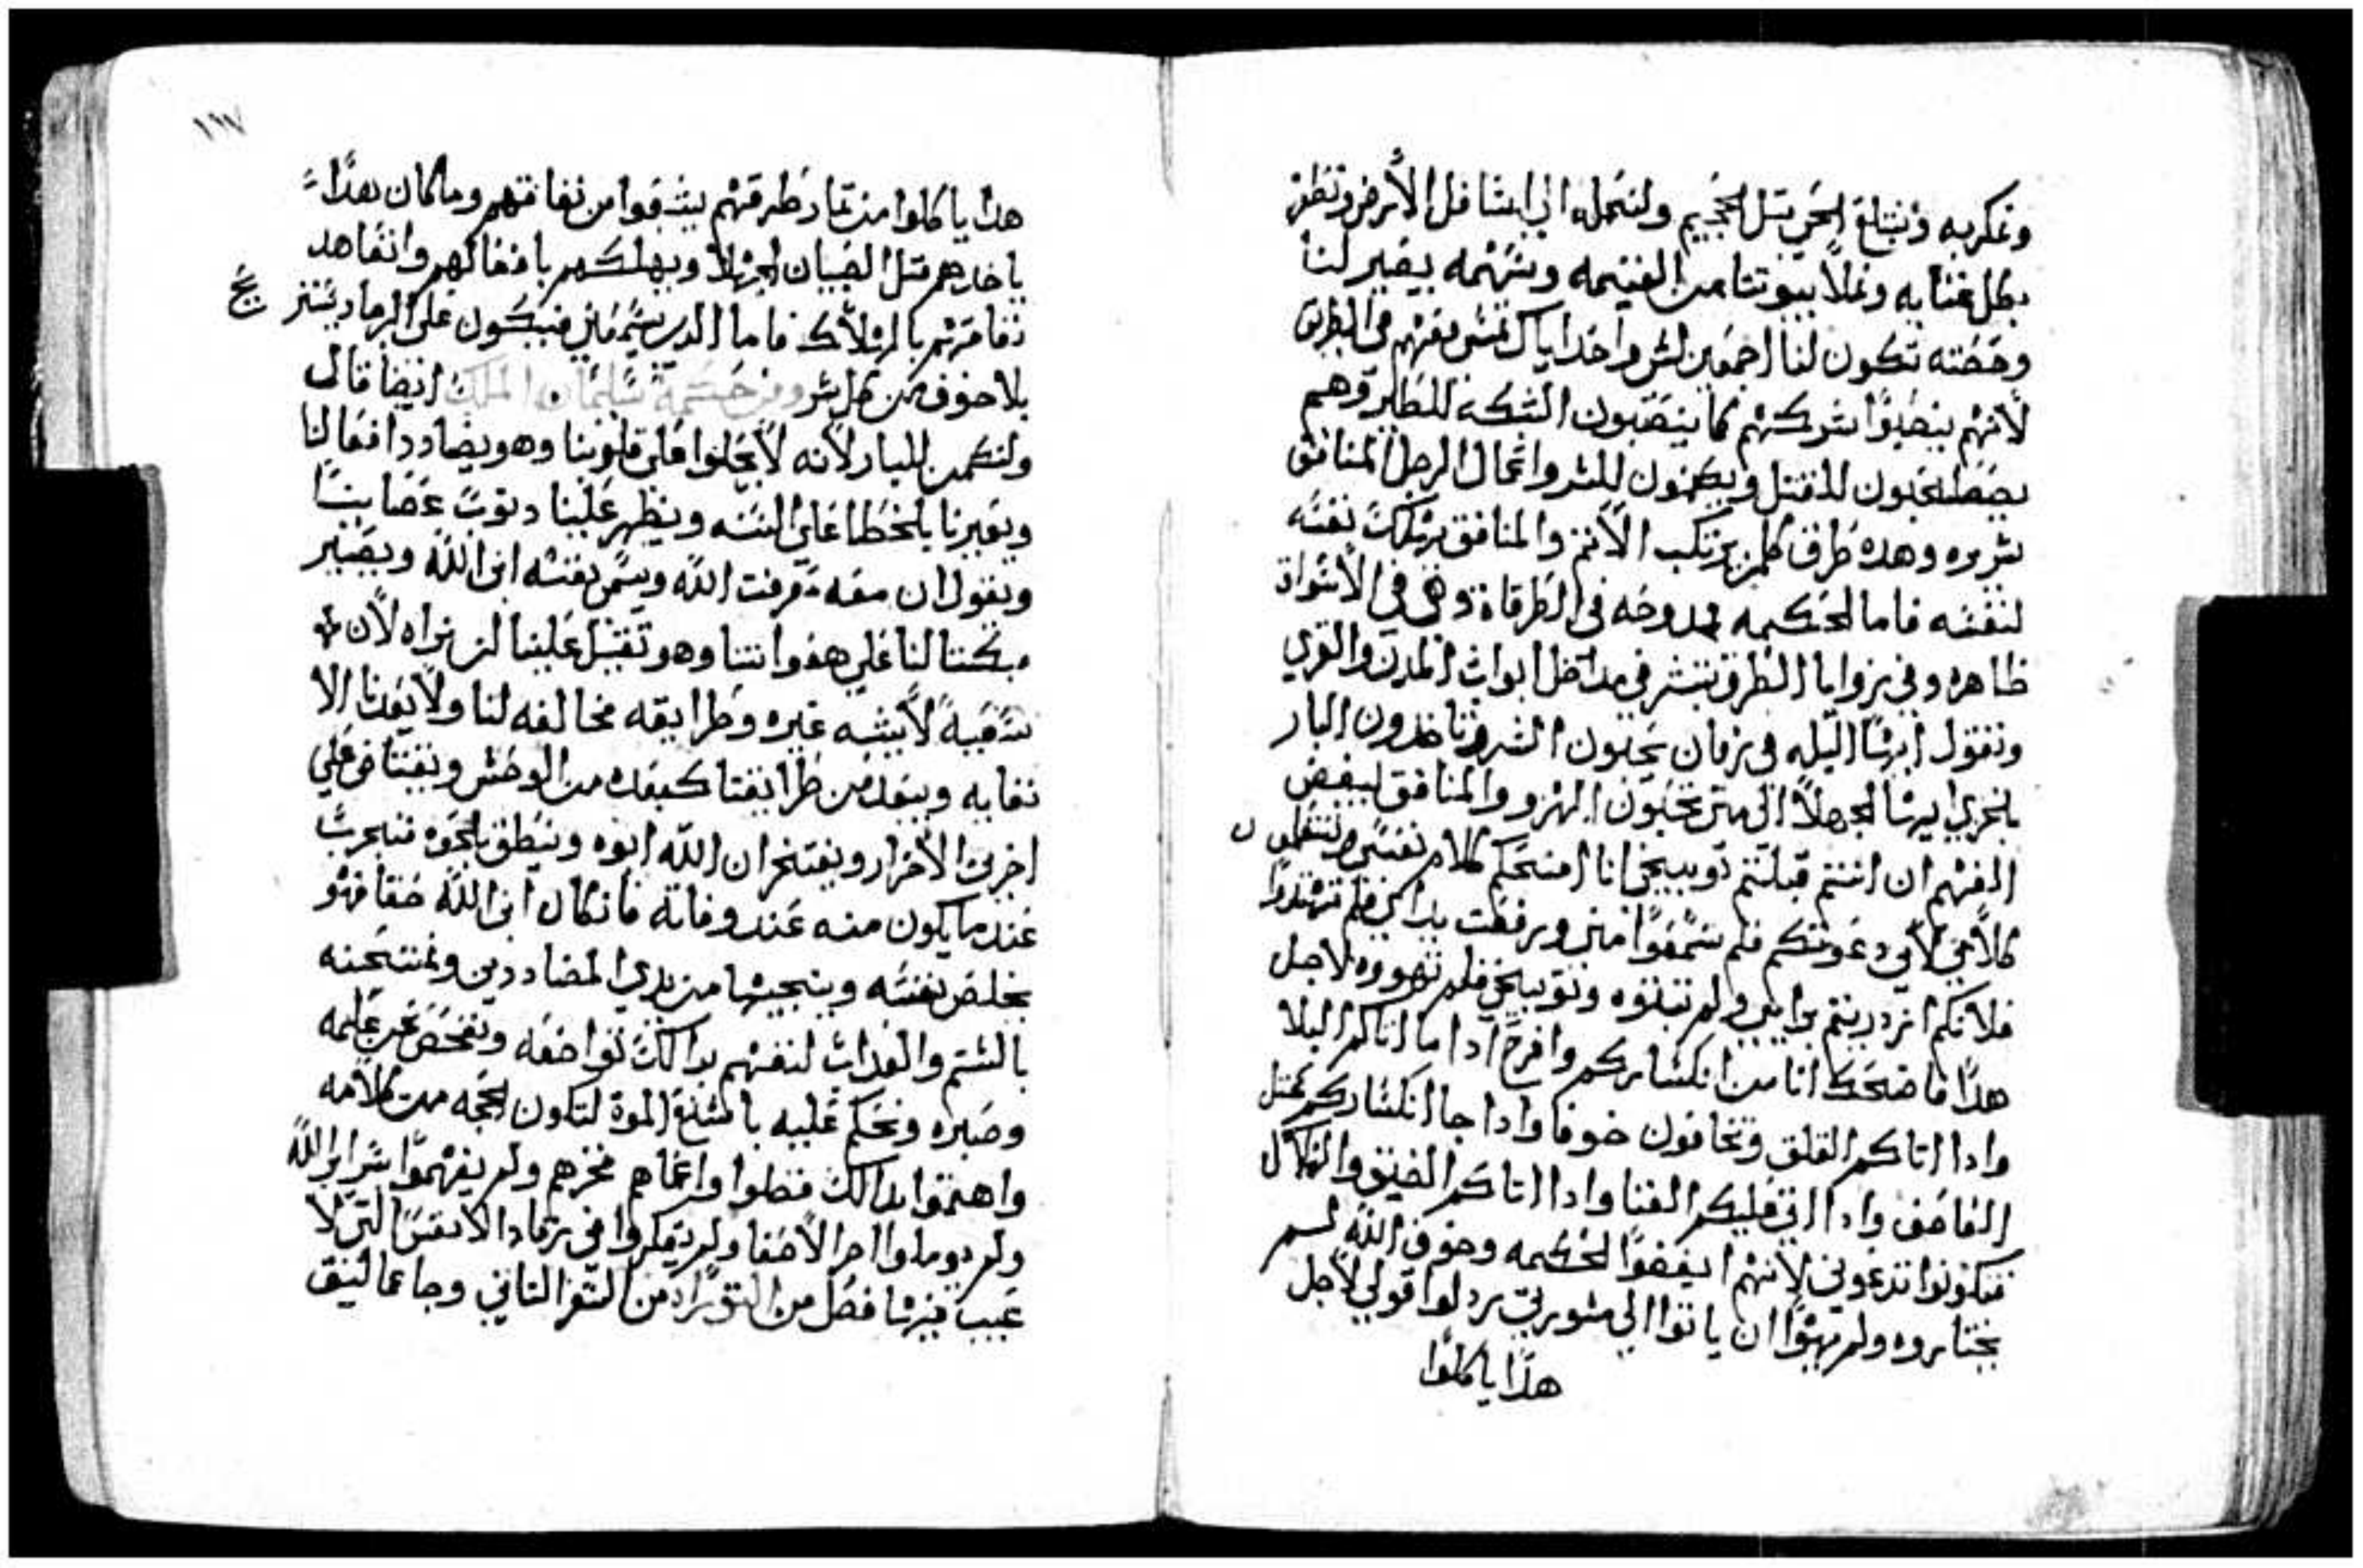 ونمكر به ونبتلع الحي مثل الجحيم ولنحمله الي اسافل الأرض ونظفر
بكل غنايه ونملا بيوتنا من الغنيمه وسهمه يصير لنا
وحصته تكون لنا اجمعين لشر واحد اياك تمشي معهم في الطريق
لأنهم ينصبوا شركهم كما ينصبون الشبكه للطير وهم
يصطحبون للقتل ويكمنون للشر واعمال الرجل المنافق
شريره وهده طرق كلمن يرتكب الأثم والمنافق يهلك نفسه
لنفسه فاما الحكيمه ممدوحه في الطرقاة وهي في الأسواق
ظاهره وفي زوايا الطرق تبشر في مداخل ابواب المدن والقري
وتقول ايها البله في زمان يحبون الشر وياخدون البار
بالخزي ايها الجهلا الي متي تحبون الهزو والمنافق ليبغض
الفهم ان انتم قبلتم توبيخي انا امنحكم كلام نفسي وتتعلمون
كلامي لأني دعوتكم فلم تسمعوا مني ورفعت يداي فلم تهتدوا
فلانكم ازدريتم برايي ولم تقبلوه وتوبيخي فلم تهووه لاجل
هدا فاضحك انا من انكساركم وافرح ادا ما اتاكم البلا
وادا اتاكم القلق وتخافون خوفا وادا جا انكساركم كمثل
العاصف وادا اتي عليكم الفنا وادا اتاكم الضيق والنكال
فتكونوا تدعوني لأنهم ابغضوا الحكمه وخوف الله لم
يختاروه ولم يهووا ان ياتوا الي مشورتي ردلوا قولي لأجل
هدا ياكلوا
١١٧
هدا ياكلوا من تمار طرقهم يشبعوا من نفاقهم وما كان هدا
ياخدهم مثل الصبيان الجهلا ويهلكهم بافعالهم وانفاهد
نفاقهم بالهلاك فاما الدي يسمعني فيكون علي الرجا ويستتر
بلا خوف من كل شر ومن حكمة سليمان الملك ايضا قال
ولنكمن للبار لأنه لا يحلوا علي قلوبنا وهو يضادد افعالنا
ويعيرنا بالخطا علي السنه ويظهر علينا دنوب عصابنا
ويقول ان معه معرفت الله ويسمي نفسه ابن الله ويصير
مبكتا لنا علي هفواتنا وهو ثقيل علينا ان نراه لأن
سعيه لا يشبه غيره وطرايقه مخالفه لنا ولا يعدنا الا
نفايه ويبعد من طرايقنا كبعده من الوحش وبغتاض علي
اخرت الأخرار ويفتخر ان الله ابوه وينطق بالحق فنجرب
عند ما يكون منه عند وفاته فانكان ابن الله حقا فهو
يخلص نفسه وينجيها من يدي المضاددين ونمتحنه
بالشتم والعداب لنفهم بدالك تواضعه ونفحص عن علمه
وصبره ونحكم عليه باشنع الموت لتكون الحجه من كلامه
واهتموا بدالك فضلوا واعماهم فخرهم ولم يفهموا سراير الله
ولم يوملوا اجر الأصفيا ولم يفكروا في الانفس التي لا
عيب فيها فصل من التوراه من السفر التاني وجا عماليق